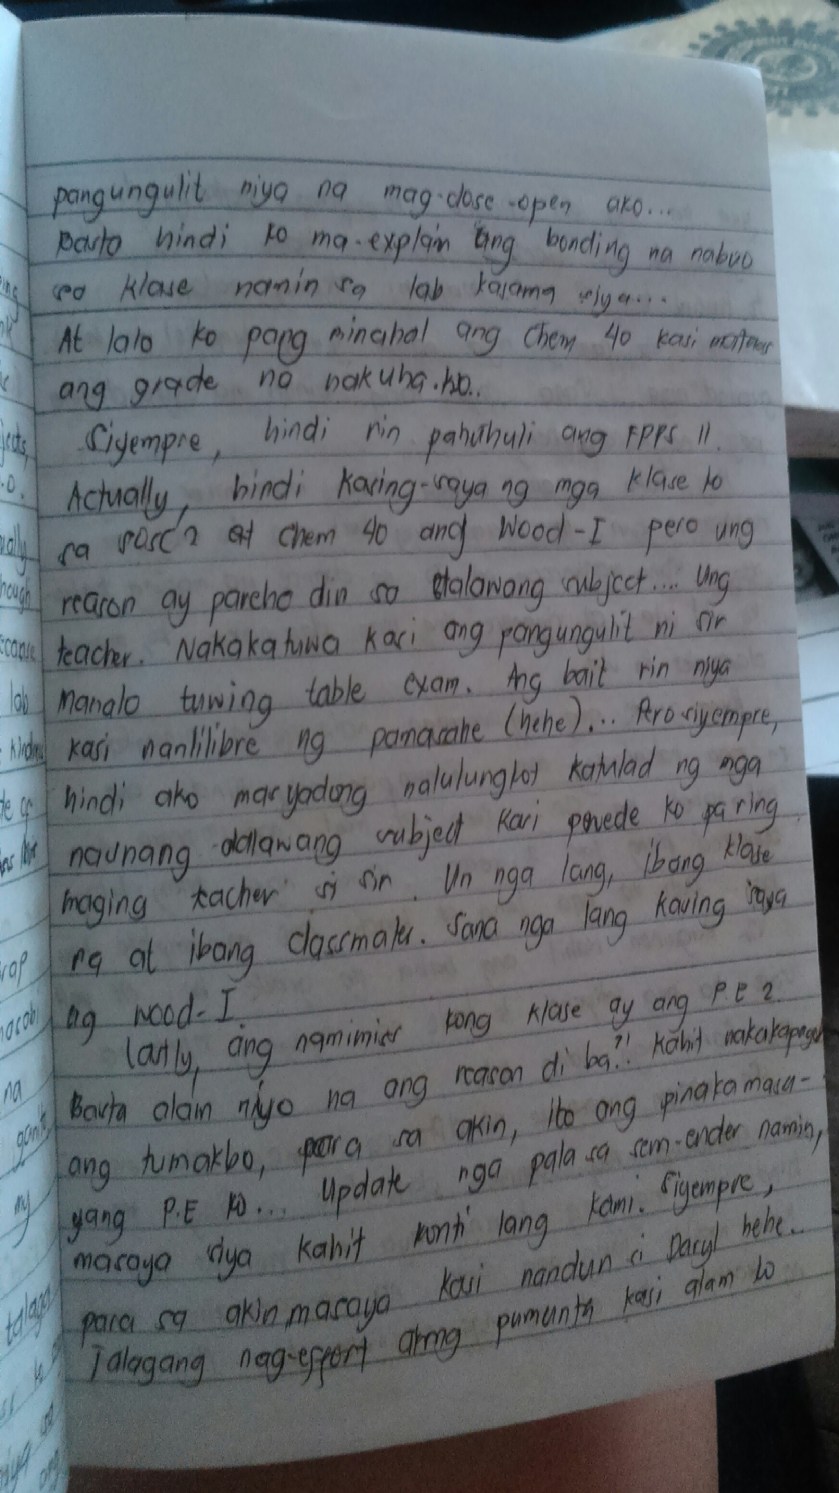 pangungulit niya na mag-close-open ako...
Basta hindi ko ma-explain ang bonding na nabuo
sa klase namin sa lab kasama siya...
At lalo ko pang minahal ang Chem 40 kasi mataas
ang grade na nakuha ko..
Siyempre, hindi rin pahuhuli ang FPPS 11.
Actually, hindi kasing-saya ng mga klase ko
sa sosc 2 at chem 40 ang Wood-I pero ung
reason ay pareho din sa dalawang subject.... Ung
teacher. Nakakatuwa kasi ang pangungulit ni sir
Manalo tuwing table exam. Ang bait rin niya
kasi nanlilibre ng pamasahe (hehe)... Pero siyempre,
hindi ako masyadong nalulungkot katulad ng mga
naunang dalawang subject kasi pwede ko pa ring
maging teacher si sir. Un nga lang, ibang klase
na at ibang classmates. Sana nga lang kasing saya
ng wood-I.
Lastly, ang namimiss kong klase ay ang P.E 2.
Basta alam niyo na ang reason di ba?! Kahit nakakapagod
ang tumakbo, para sa akin, ito ang pinakamasa-
yang P.E ko... Update nga pala sa sem-ender namin,
masaya siya kahit konti lang kami. Siyempre,
para sa akin masaya kasi nandun si Daryl hehe..
Talagang nag-effort pumunta kasi alam ko
ing
nk
jects,
ually
hough
because
lab
kindness
de of
rap
na
my
talaga
niya sa
ang